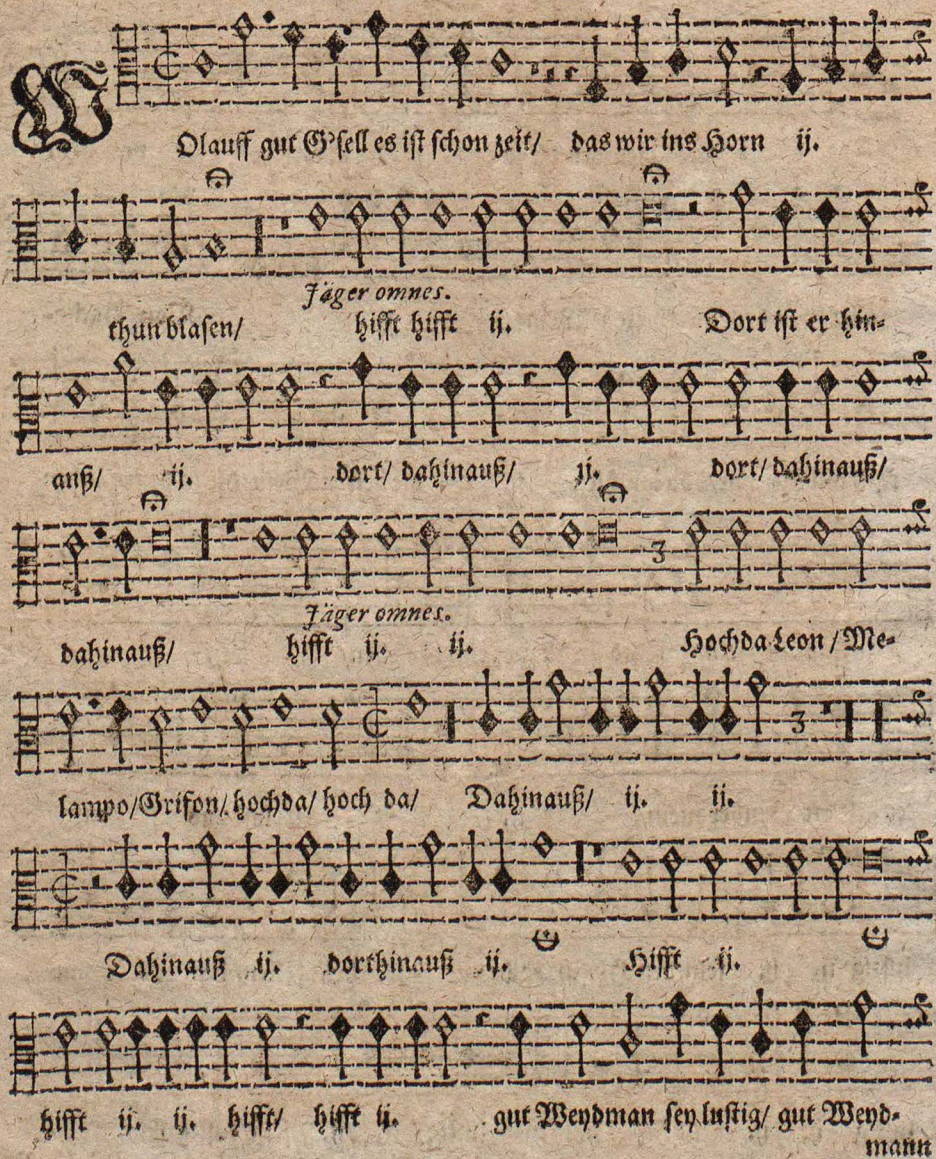 W
Olauff gut G'sell es ist schon zeit/ das wir ins Horn ij.
Jäger omnes.
thun blasen/ hifft hifft ij. Dort ist er hin-
auß/ ij. dort/ dahinauß/ ij. dort/ dahinauß/
Jäger omnes.
dahinauß/ hifft ij. ij. Hochda Leon / Me-
3
lampo/Grifon/ hochda/ hoch da/ Dahinauß/ ij. ij.
3
Dahinauß ij. dorthinauß ij. Hifft ij.
hifft ij. ij. hifft/ hifft ij. gut Weydman sey lustig/ gut Weyd-
mann